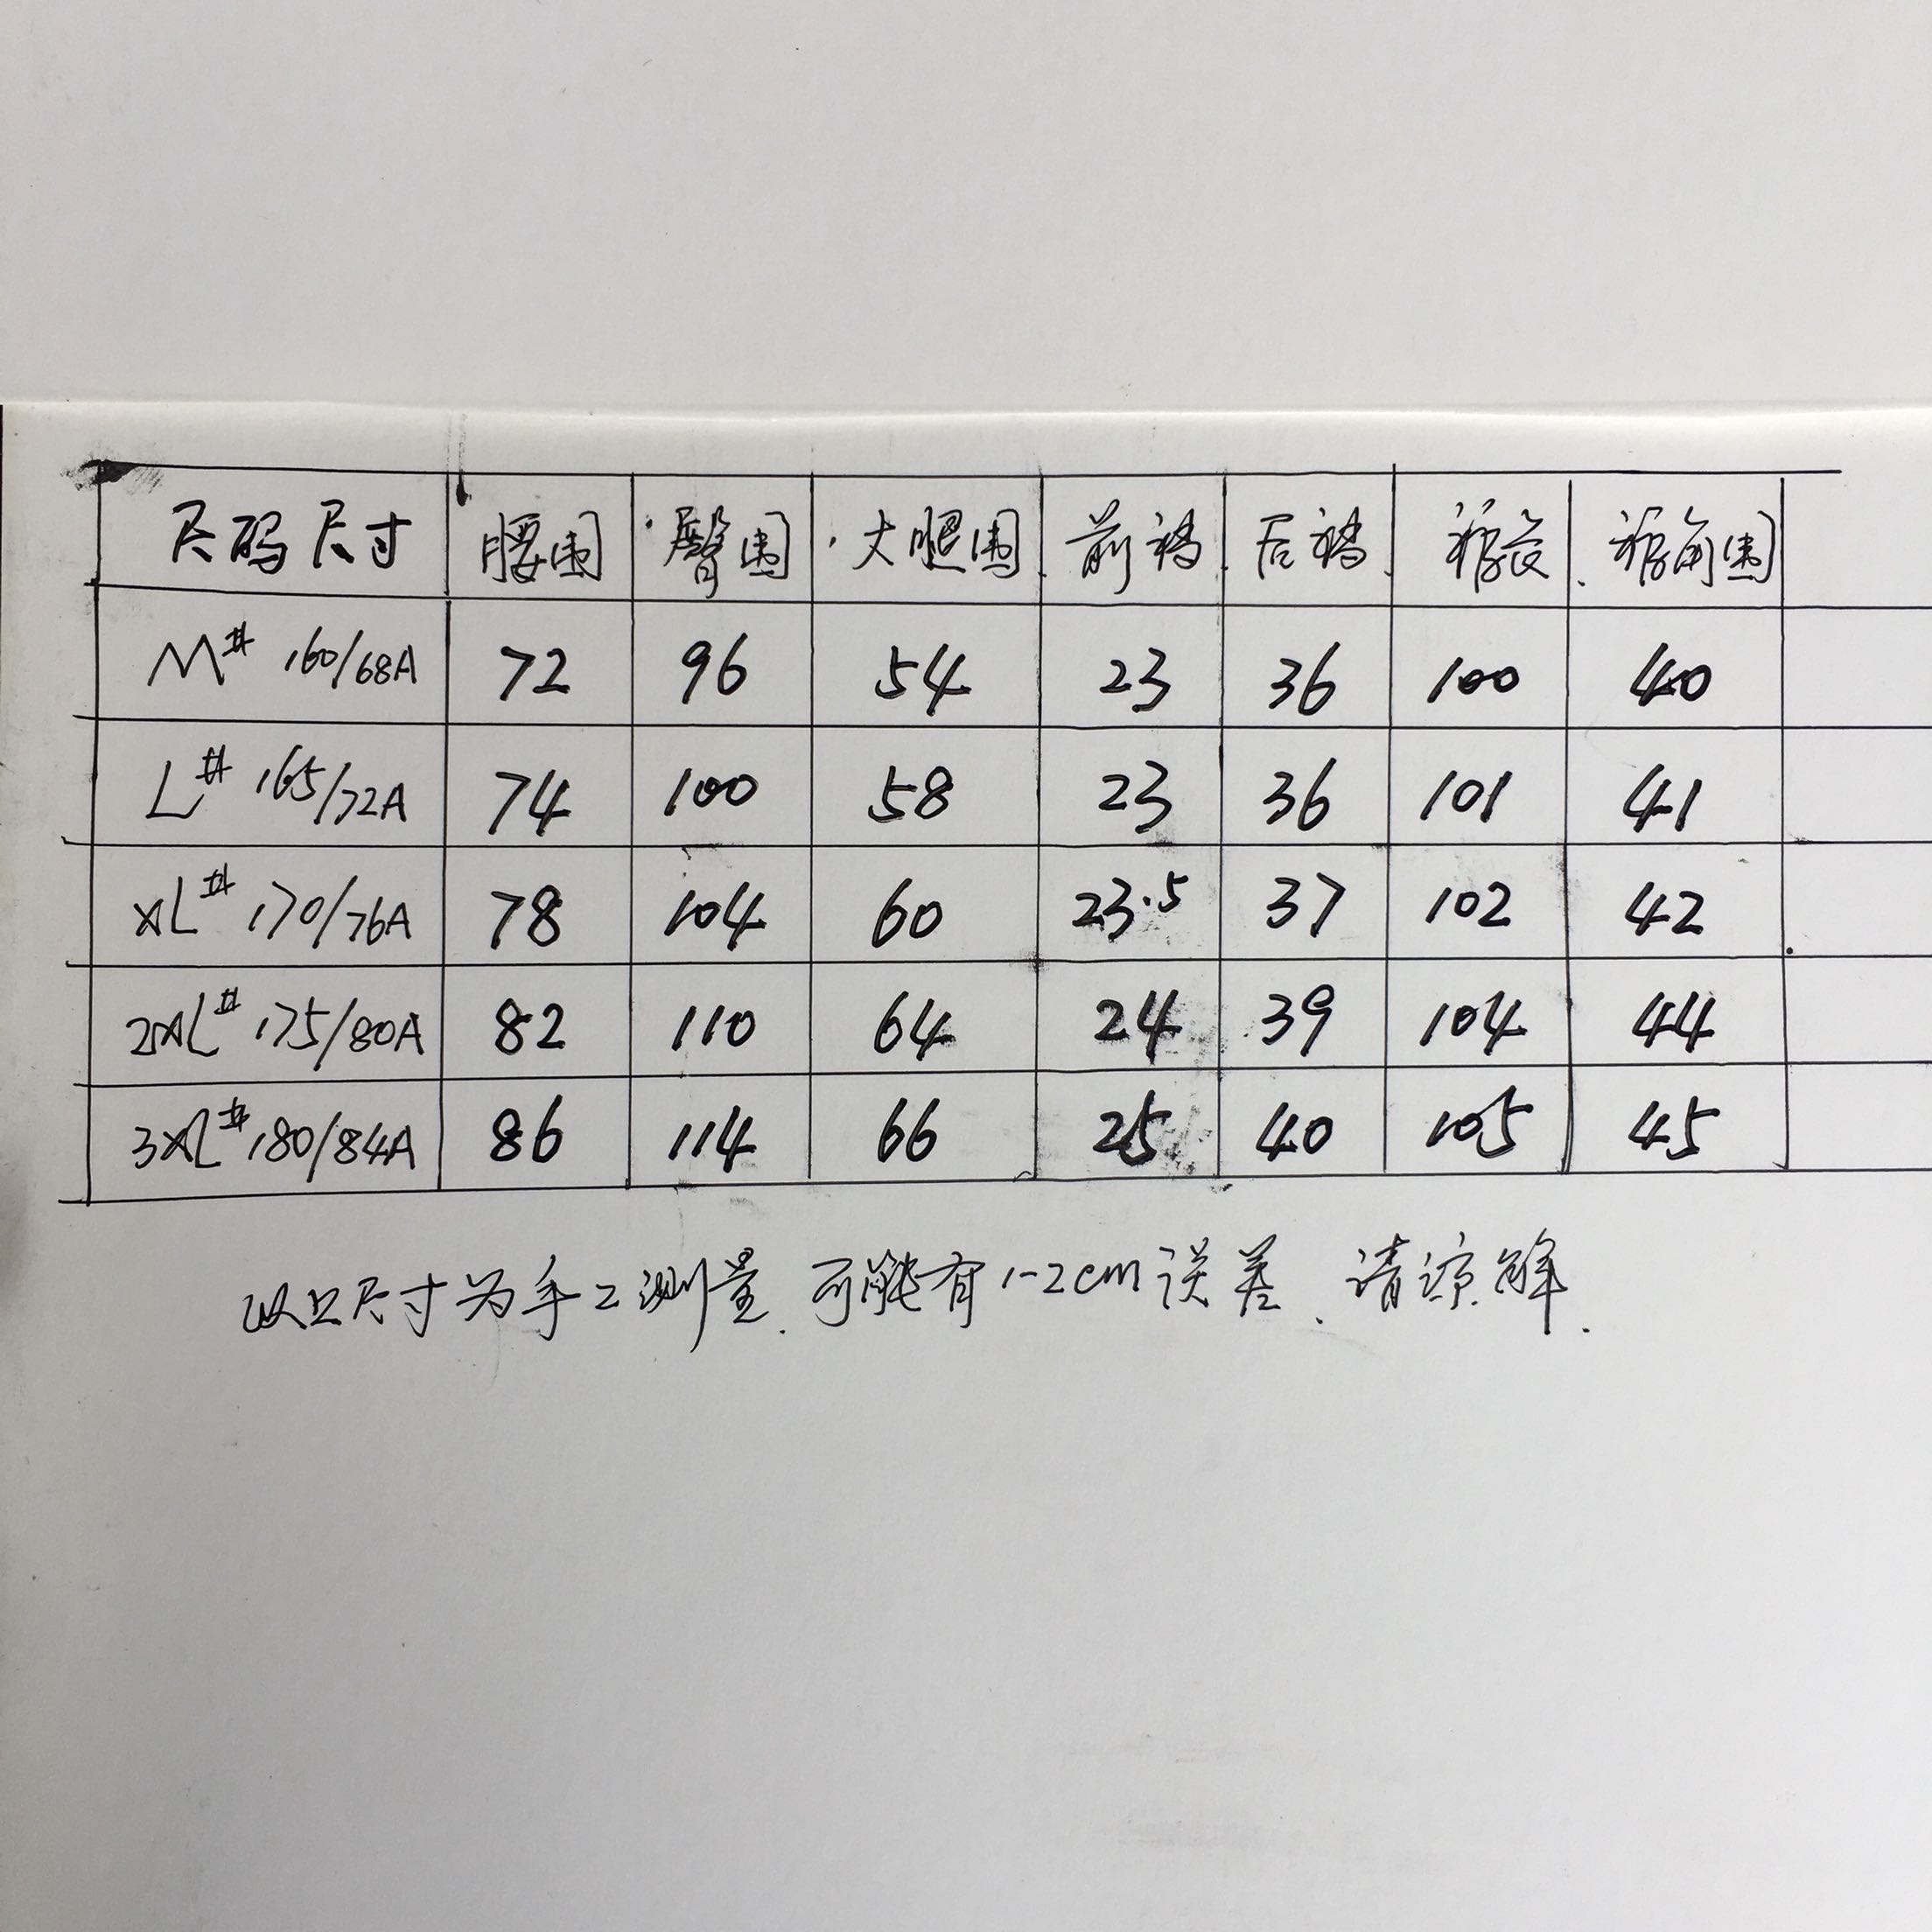 尺码尺寸 腰围 臀围 大腿围 前裆 后裆 裤长 裤角围
M# 160/68A 72 96 54 23 36 100 40
L# 165/72A 74 100 58 23 36 101 41
XL# 170/76A 78 104 60 23.5 37 102 42
2XL# 175/80A 82 110 64 24 39 104 44
3XL# 180/84A 86 114 66 25 40 105 45
以上尺寸为手工测量.可能有1-2cm误差、请谅解.